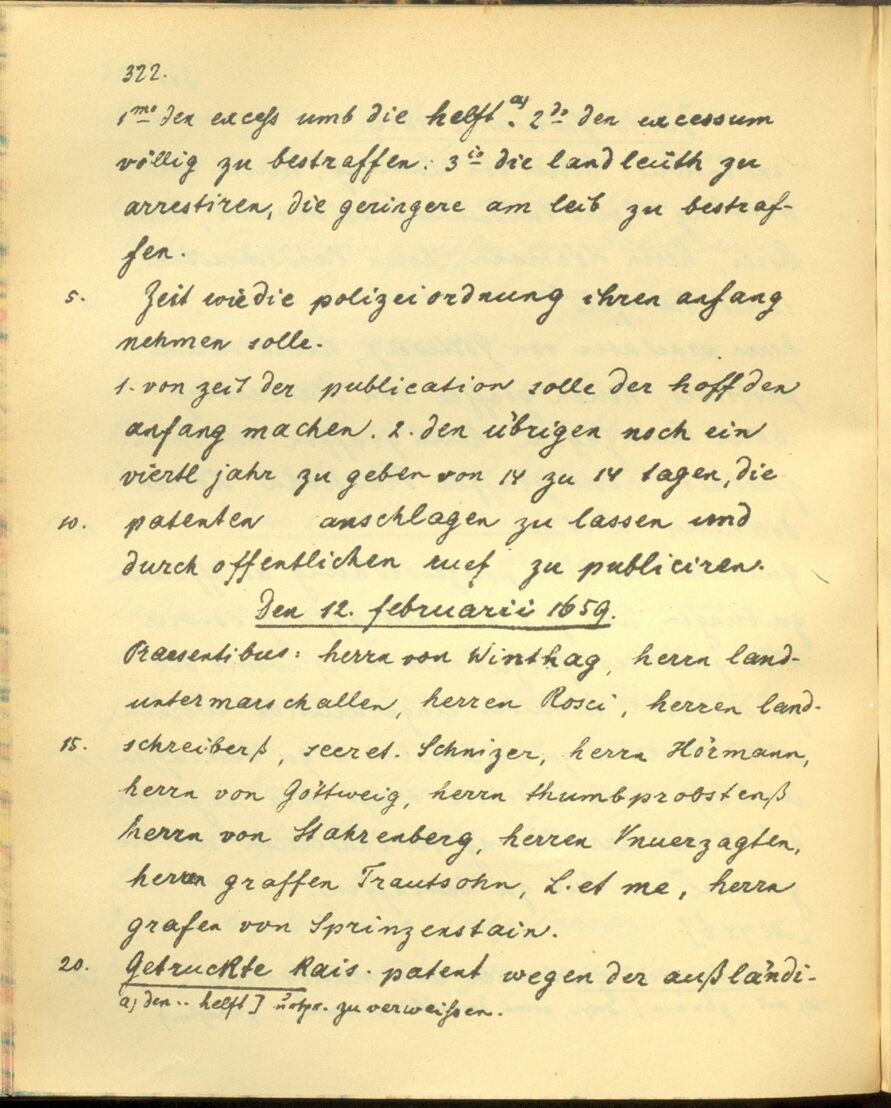 322.
1mo den excess umb die helft a). 2do den excessum
völlig zu bestraffen. 3io die landleüth zu
arrestiren, die geringere am leib zu bestraf-
fen.
5. Zeit wie die polizeiordnung ihren anfang
nehmen solle.
1. von zeit der publication solle der hoff den
anfang machen. 2. den übrigen noch ein
viertl jahr zu geben von 14 zu 14 tagen, die
10. patenten anschlagen zu lassen und
durch offentlichen ruef zu publiciren.
Den 12. februarii 1659.
Praesentibus: herrn von Winthag, herrn land-
untermarschallen, herren Rosci, herren land-
15. schreiberß, secret. Schnizer, herrn Hörmann,
herrn von Göttweig, herrn thumbprobstenß
herrn von Stahrenberg, herren Vnuerzagten,
herren graffen Trautsohn, L. et me, herrn
grafen von Sprinzenstain.
20. Getruckte Kais. patent wegen der außländi-
a) den .. helft] zu verweissen.